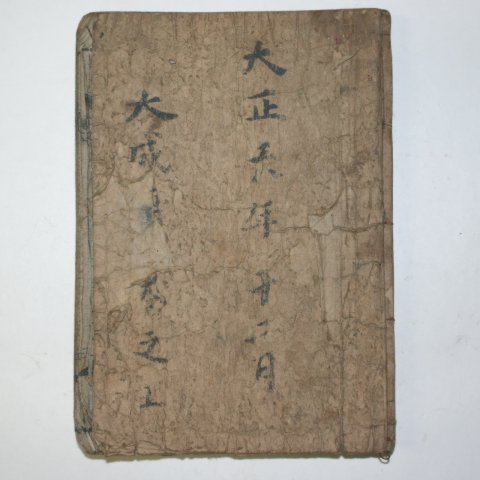 大正年十二月
大成卷之上